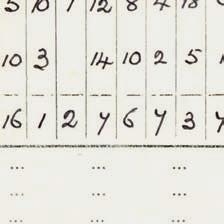 5 10 1 12 8 4 18
10 3 14 10 2 5
16 1 2 7 6 7 3
... ... ...
... ... ...
... ... ...